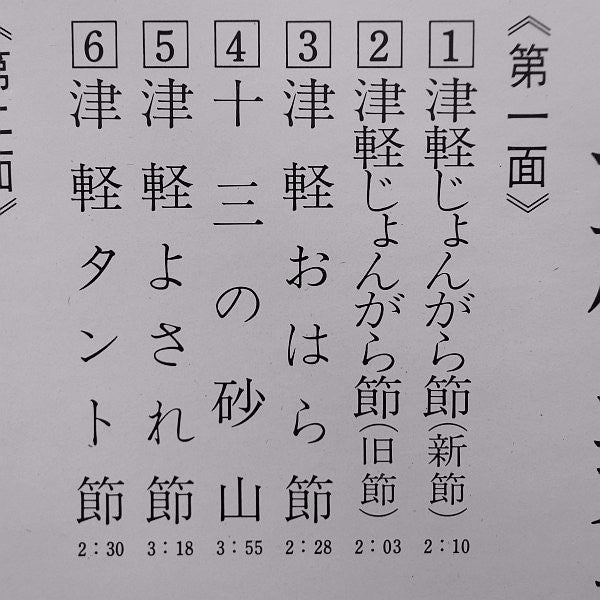 《第一面》
1 津軽じょんがら節(新節) 2:10
2 津軽じょんがら節(旧節) 2:03
3 津軽おはら節 2:28
4 十三の砂山 3:55
5 津軽よされ節 3:18
6 津軽タント節 2:30
《第二面》